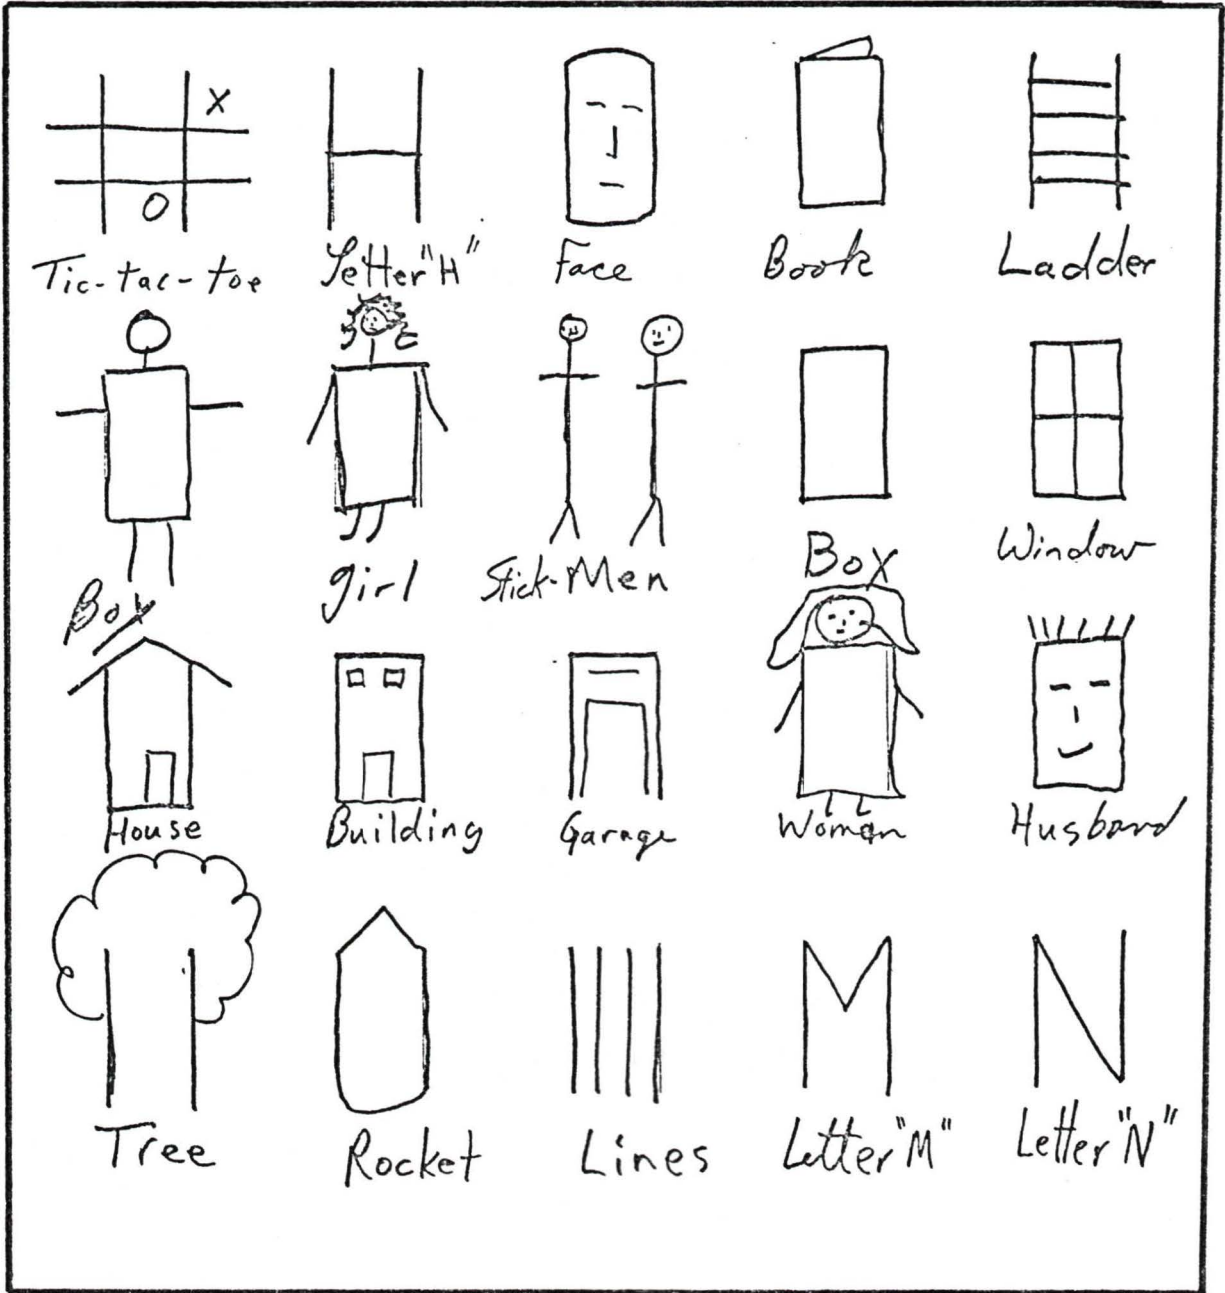 X
O
Tic-tac-toe Letter "H" Face Book Ladder
Box girl Stick-Men Box Window
House Building Garage Woman Husband
Tree Rocket Lines Letter "M" Letter "N"